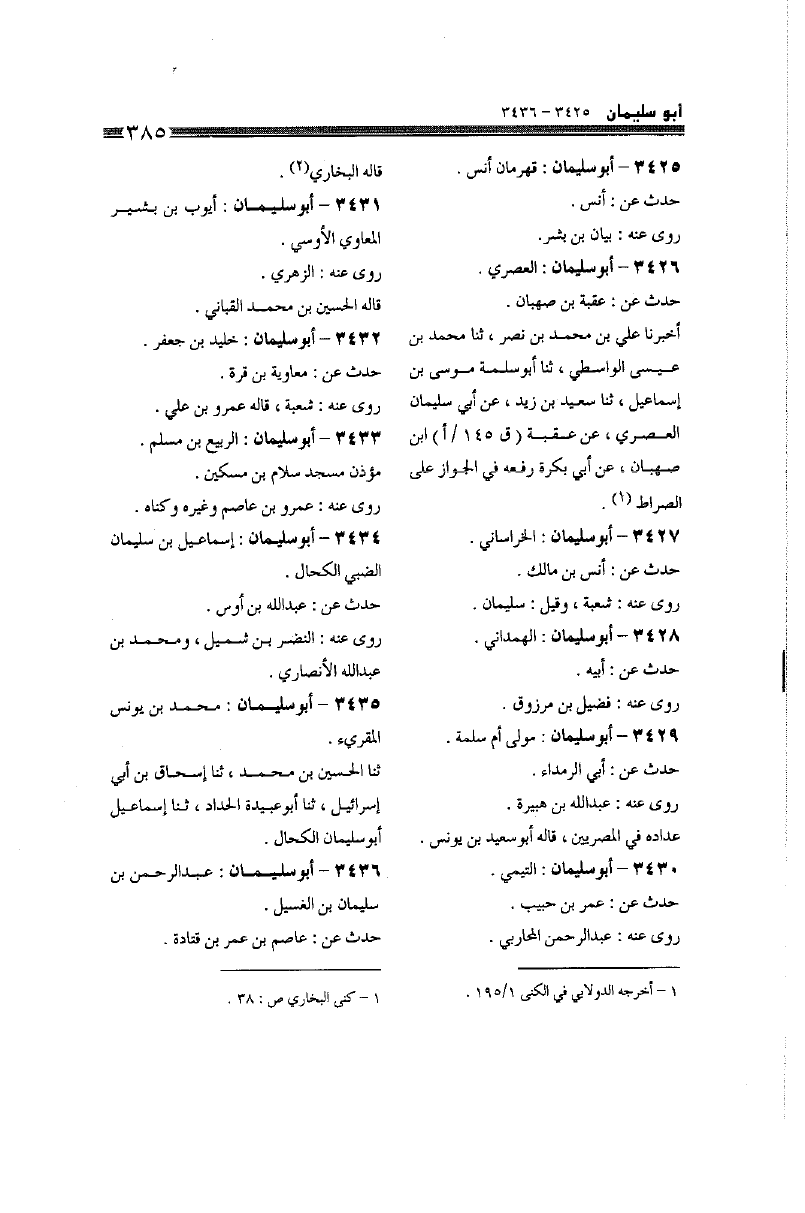 أبو سليمان ٣٤٢٥ - ٣٤٣٦
٣٨٥
٣٤٢٥ - أبو سليمان : قهرمان أنس .
حدث عن : أنس .
روى عنه : بيان بن بشر.
٣٤٢٦ - أبو سليمان : العصري .
حدث عن : عقبة بن صهبان .
أخبرنا علي بن محمد بن نصر ، ثنا محمد بن
عيسى الواسطي ، ثنا أبو سلمة موسى بن
إسماعيل ، ثنا سعيد بن زيد ، عن أبي سليمان
العصري ، عن عقبة ( ق ١٤٥ / أ ) ابن
صهبان ، عن أبي بكرة رفعه في الجواز على
الصراط (١) .
٣٤٢٧ - أبو سليمان : الخراساني .
حدث عن : أنس بن مالك .
روى عنه : شعبة ، وقيل : سليمان .
٣٤٢٨ - أبو سليمان : الهمداني .
حدث عن : أبيه .
روى عنه : فضيل بن مرزوق .
٣٤٢٩ - أبو سليمان : مولى أم سلمة .
حدث عن : أبي الرمداء .
روى عنه : عبدالله بن هبيرة .
عداده في المصريين ، قاله أبو سعيد بن يونس .
٣٤٣٠ - أبو سليمان : التيمي .
حدث عن : عمر بن حبيب .
روى عنه : عبدالرحمن المحاربي .
١ - أخرجه الدولابي في الكنى ١/ ١٩٥ .
قاله البخاري(٢) .
٣٤٣١ - أبو سليمان : أيوب بن بشير
المعاوي الأوسي .
روى عنه : الزهري .
قاله الحسين بن محمد القباني .
٣٤٣٢ - أبو سليمان : خليد بن جعفر .
حدث عن : معاوية بن قرة .
روى عنه : شعبة ، قاله عمرو بن علي .
٣٤٣٣ - أبو سليمان : الربيع بن مسلم .
مؤذن مسجد سلام بن مسكين .
روى عنه : عمرو بن عاصم وغيره وكناه .
٣٤٣٤ - أبو سليمان : إسماعيل بن سليمان
الضبي الكحال .
حدث عن : عبدالله بن أوس .
روى عنه : النضر بن شميل ، ومحمد بن
عبدالله الأنصاري .
٣٤٣٥ - أبو سليمان : محمد بن يونس
المقريء .
ثنا الحسين بن محمد ، ثنا إسحاق بن أبي
إسرائيل ، ثنا أبو عبيدة الحداد ، ثنا إسماعيل
أبو سليمان الكحال .
٣٤٣٦ - أبو سليمان : عبدالرحمن بن
سليمان بن الغسيل .
حدث عن : عاصم بن عمر بن قتادة .
١ - كنى البخاري ص : ٣٨ .